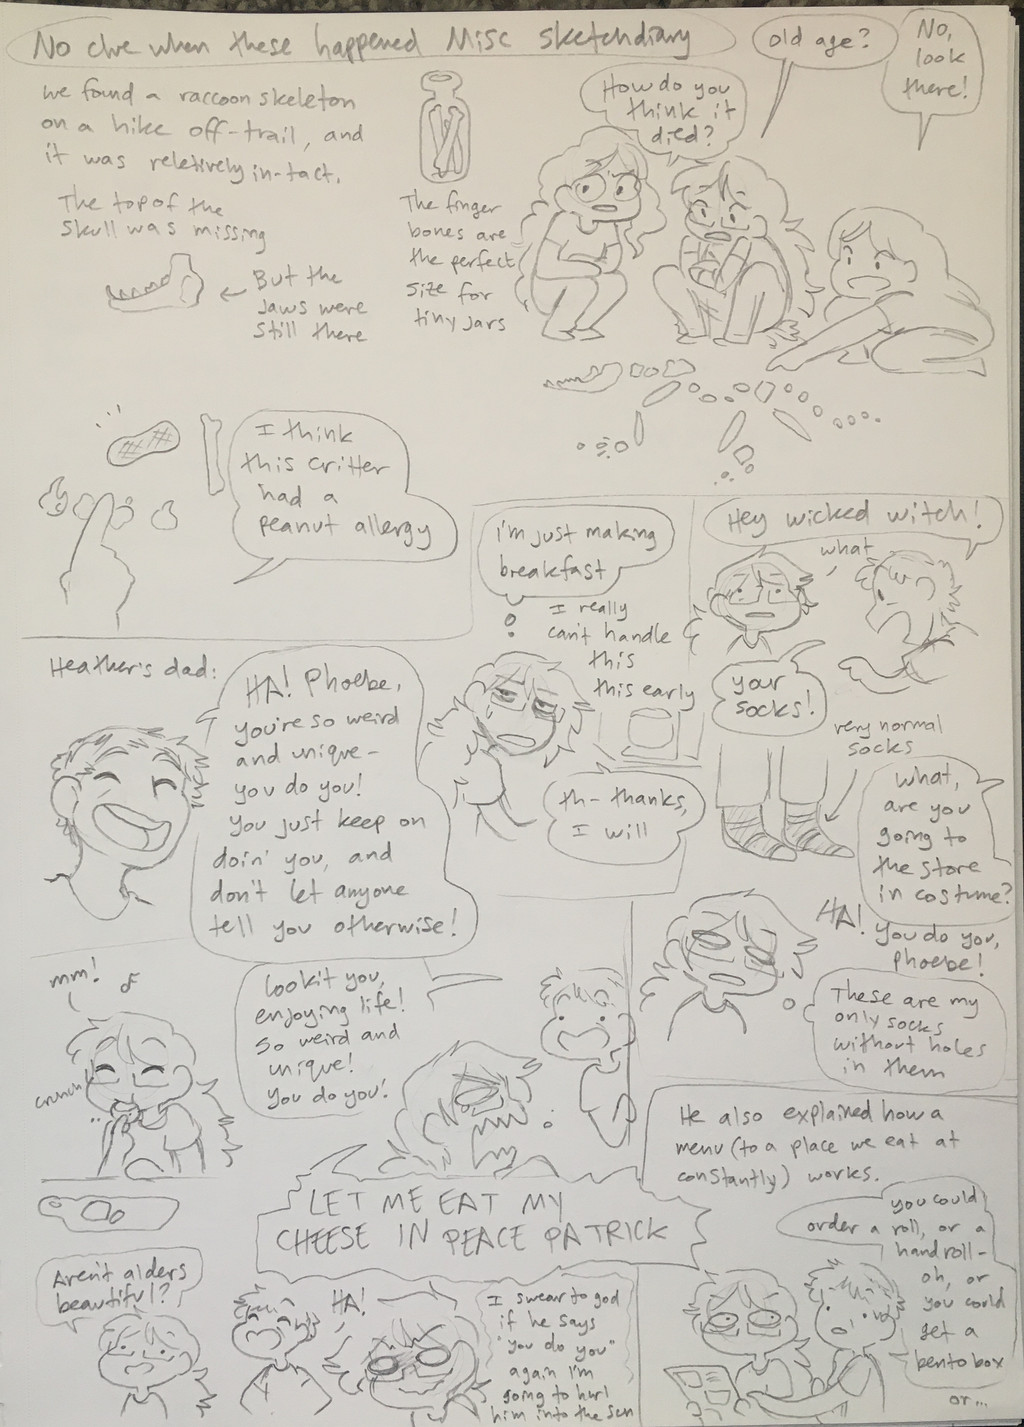 No clue when these happened Misc sketchdiary
we found a raccoon skeleton
on a hike off-trail, and
it was reletively in-tact.
The top of the
skull was missing
But the
jaws were
still there
The finger
bones are
the perfect
size for
tiny jars
How do you
think it
died?
old age?
No,
look
there!
I think
this critter
had a
peanut allergy
Heather's dad:
HA! Phoebe,
you're so weird
and unique-
you do you!
You just keep on
doin' you, and
don't let anyone
tell you otherwise!
i'm just making
breakfast
I really
can't handle
this
this early
th- thanks,
I will
Hey wicked witch!
what
your
socks!
very normal
socks
what,
are you
going to
the store
in costume?
HA!
You do you,
Phoebe!
These are my
only socks
without holes
in them
mm!
crunch
lookit you,
enjoying life!
so weird and
unique!
You do you!
LET ME EAT MY
CHEESE IN PEACE PATRICK
He also explained how a
menu (to a place we eat at
constantly) works.
you could
order a roll, or a
hand roll-
oh, or
you could
get a
bento box
or...
Aren't alders
beautiful?
HA!
I swear to god
if he says
"you do you"
again i'm
going to hurl
him into the sun